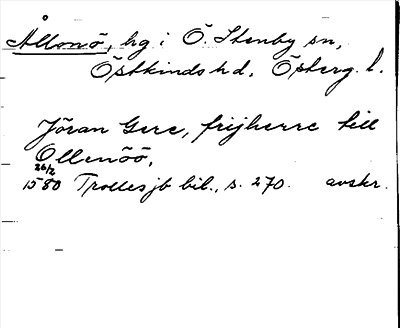 Ållonö, hg i Ö. Stenby sn,
Östkinds hd, Österg. l.
Jöran Gere, frijherre till
Ollenöö,
26/2
1580 Trolles jb bil., s. 270. avskr.